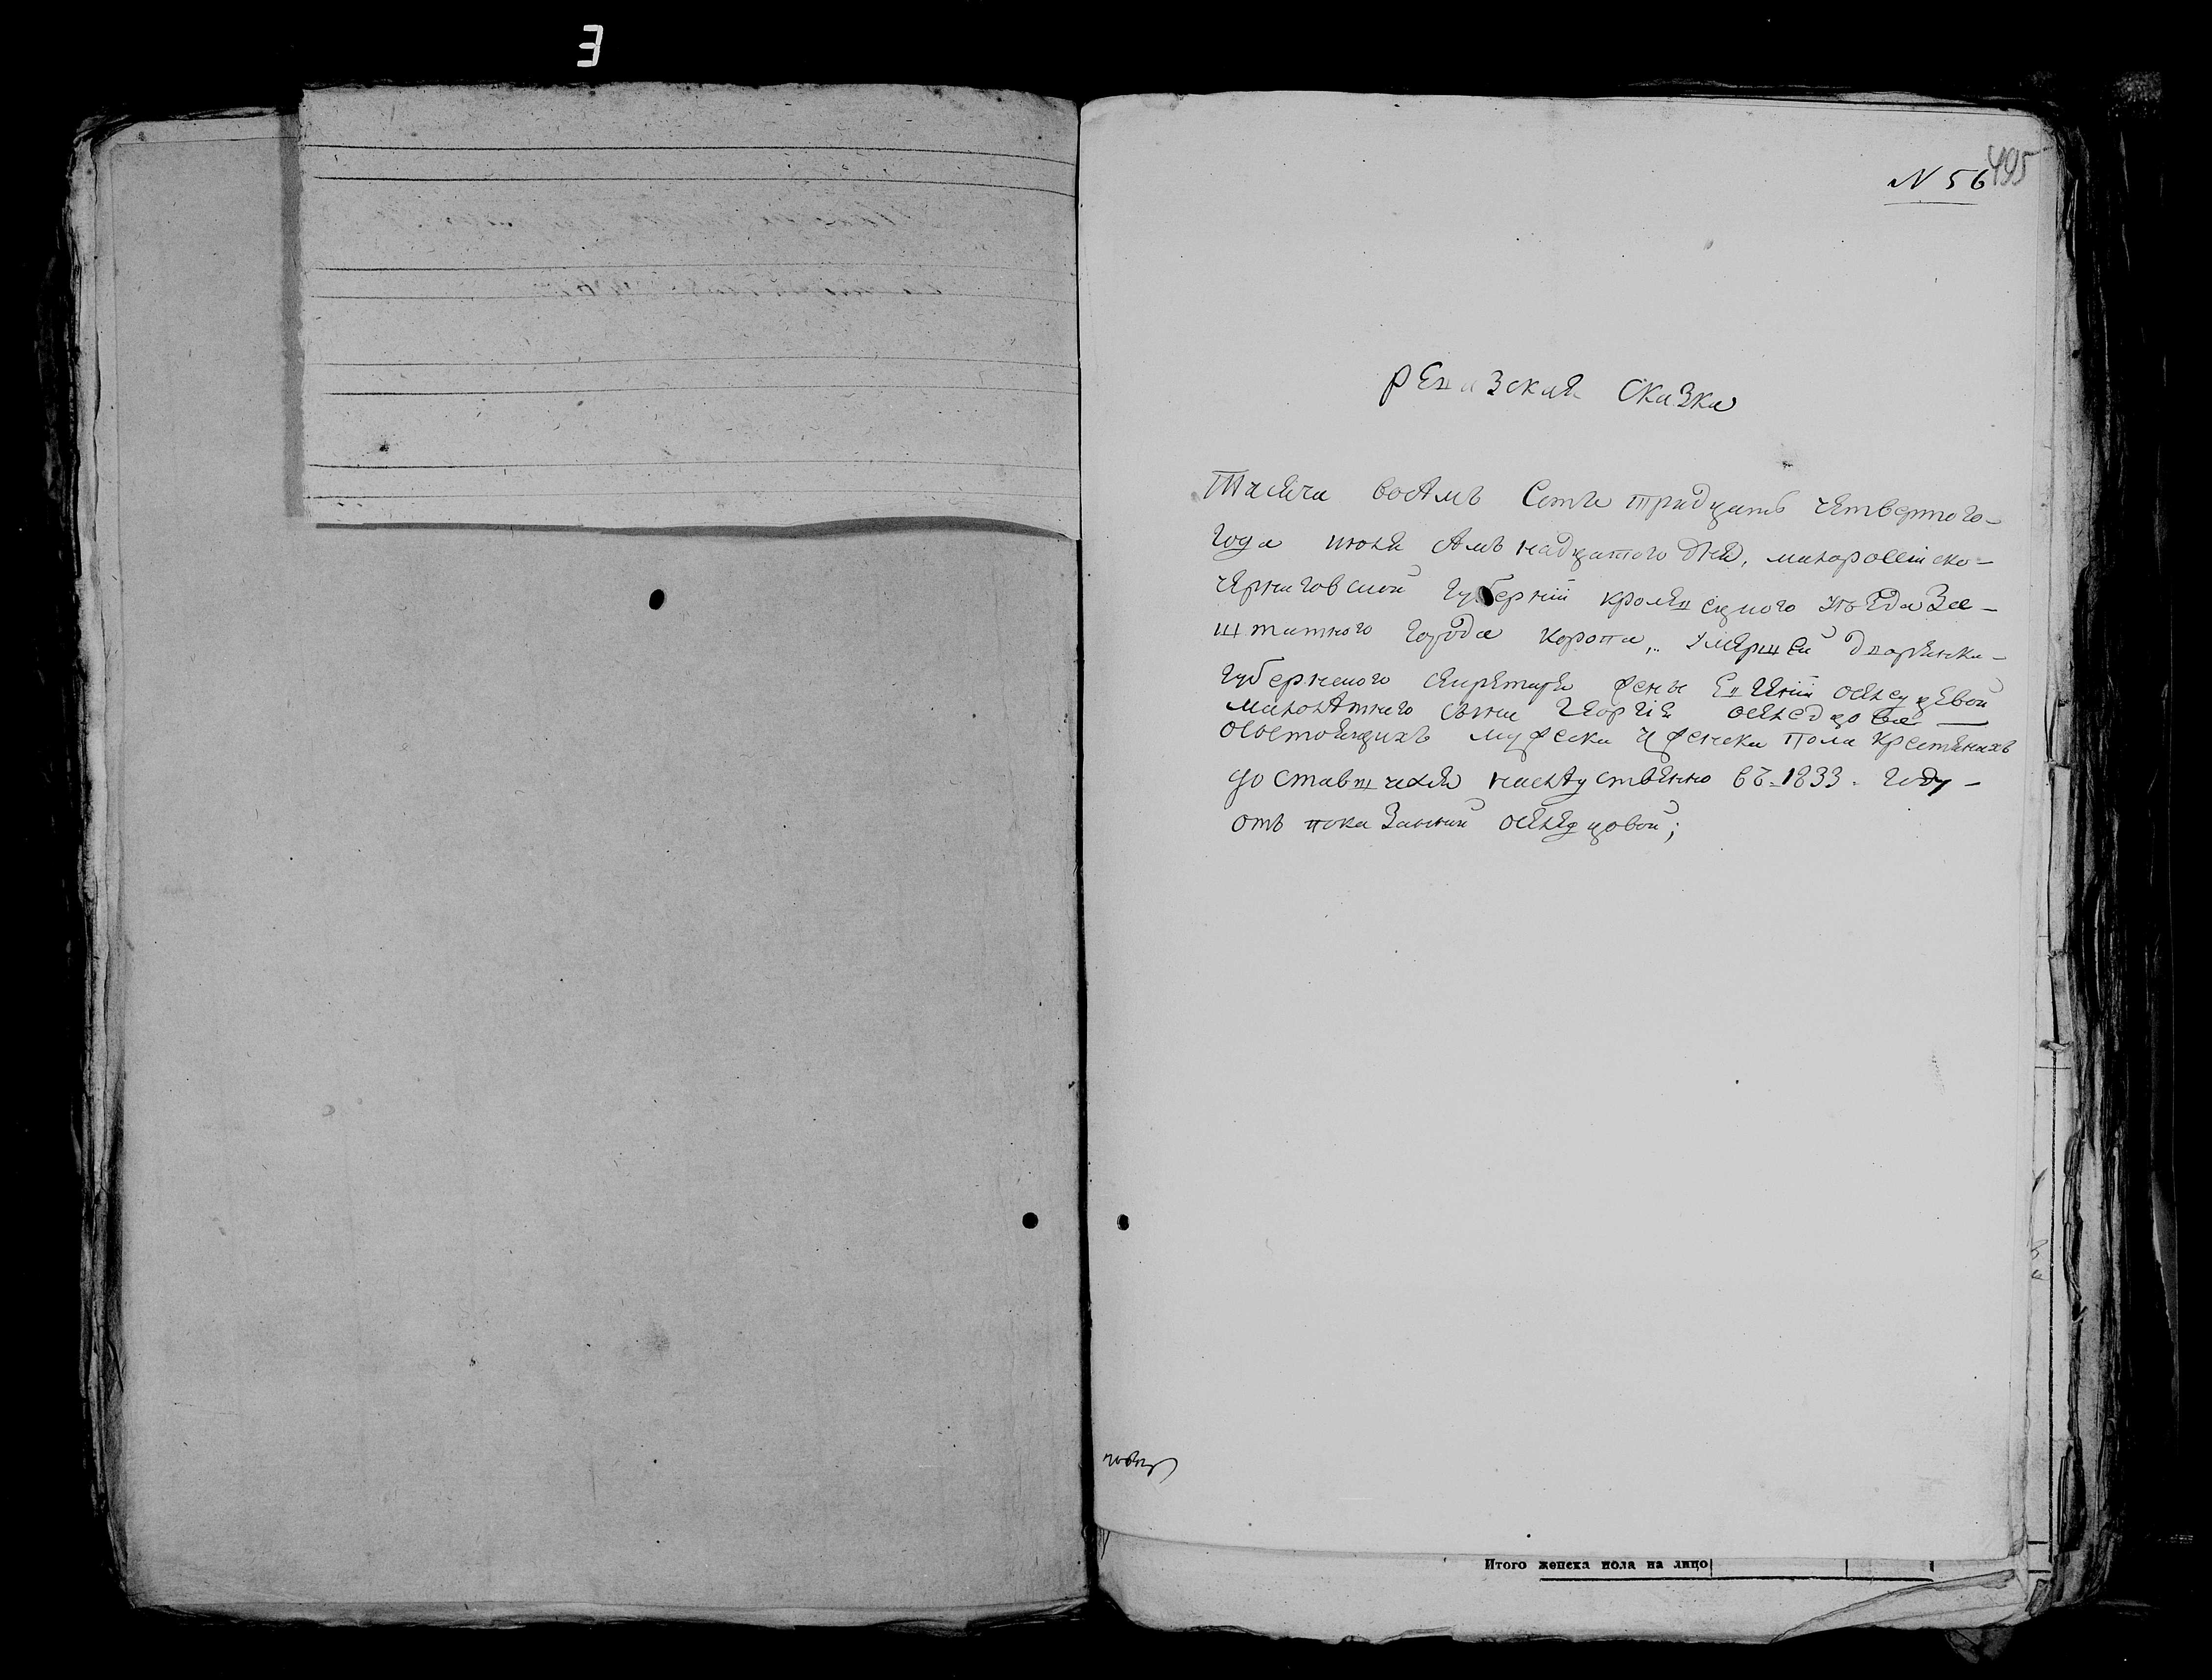 N 56 495
Ревизская сказка
Тисяча восемъ Сотъ тридцать четвертого
года июля семънадцатого дня, малоросейско-
черниговской губерний кролевецкого уезда За-
штатного города Коропа, умершей дворянки
губернского секретаря жены Евгении
малолетнего сына Георгия
о состоящихъ мужеска и женска пола крестянахъ
доставшихся наследственно въ 1833. году
отъ показанной
Итого женска пола на лицо